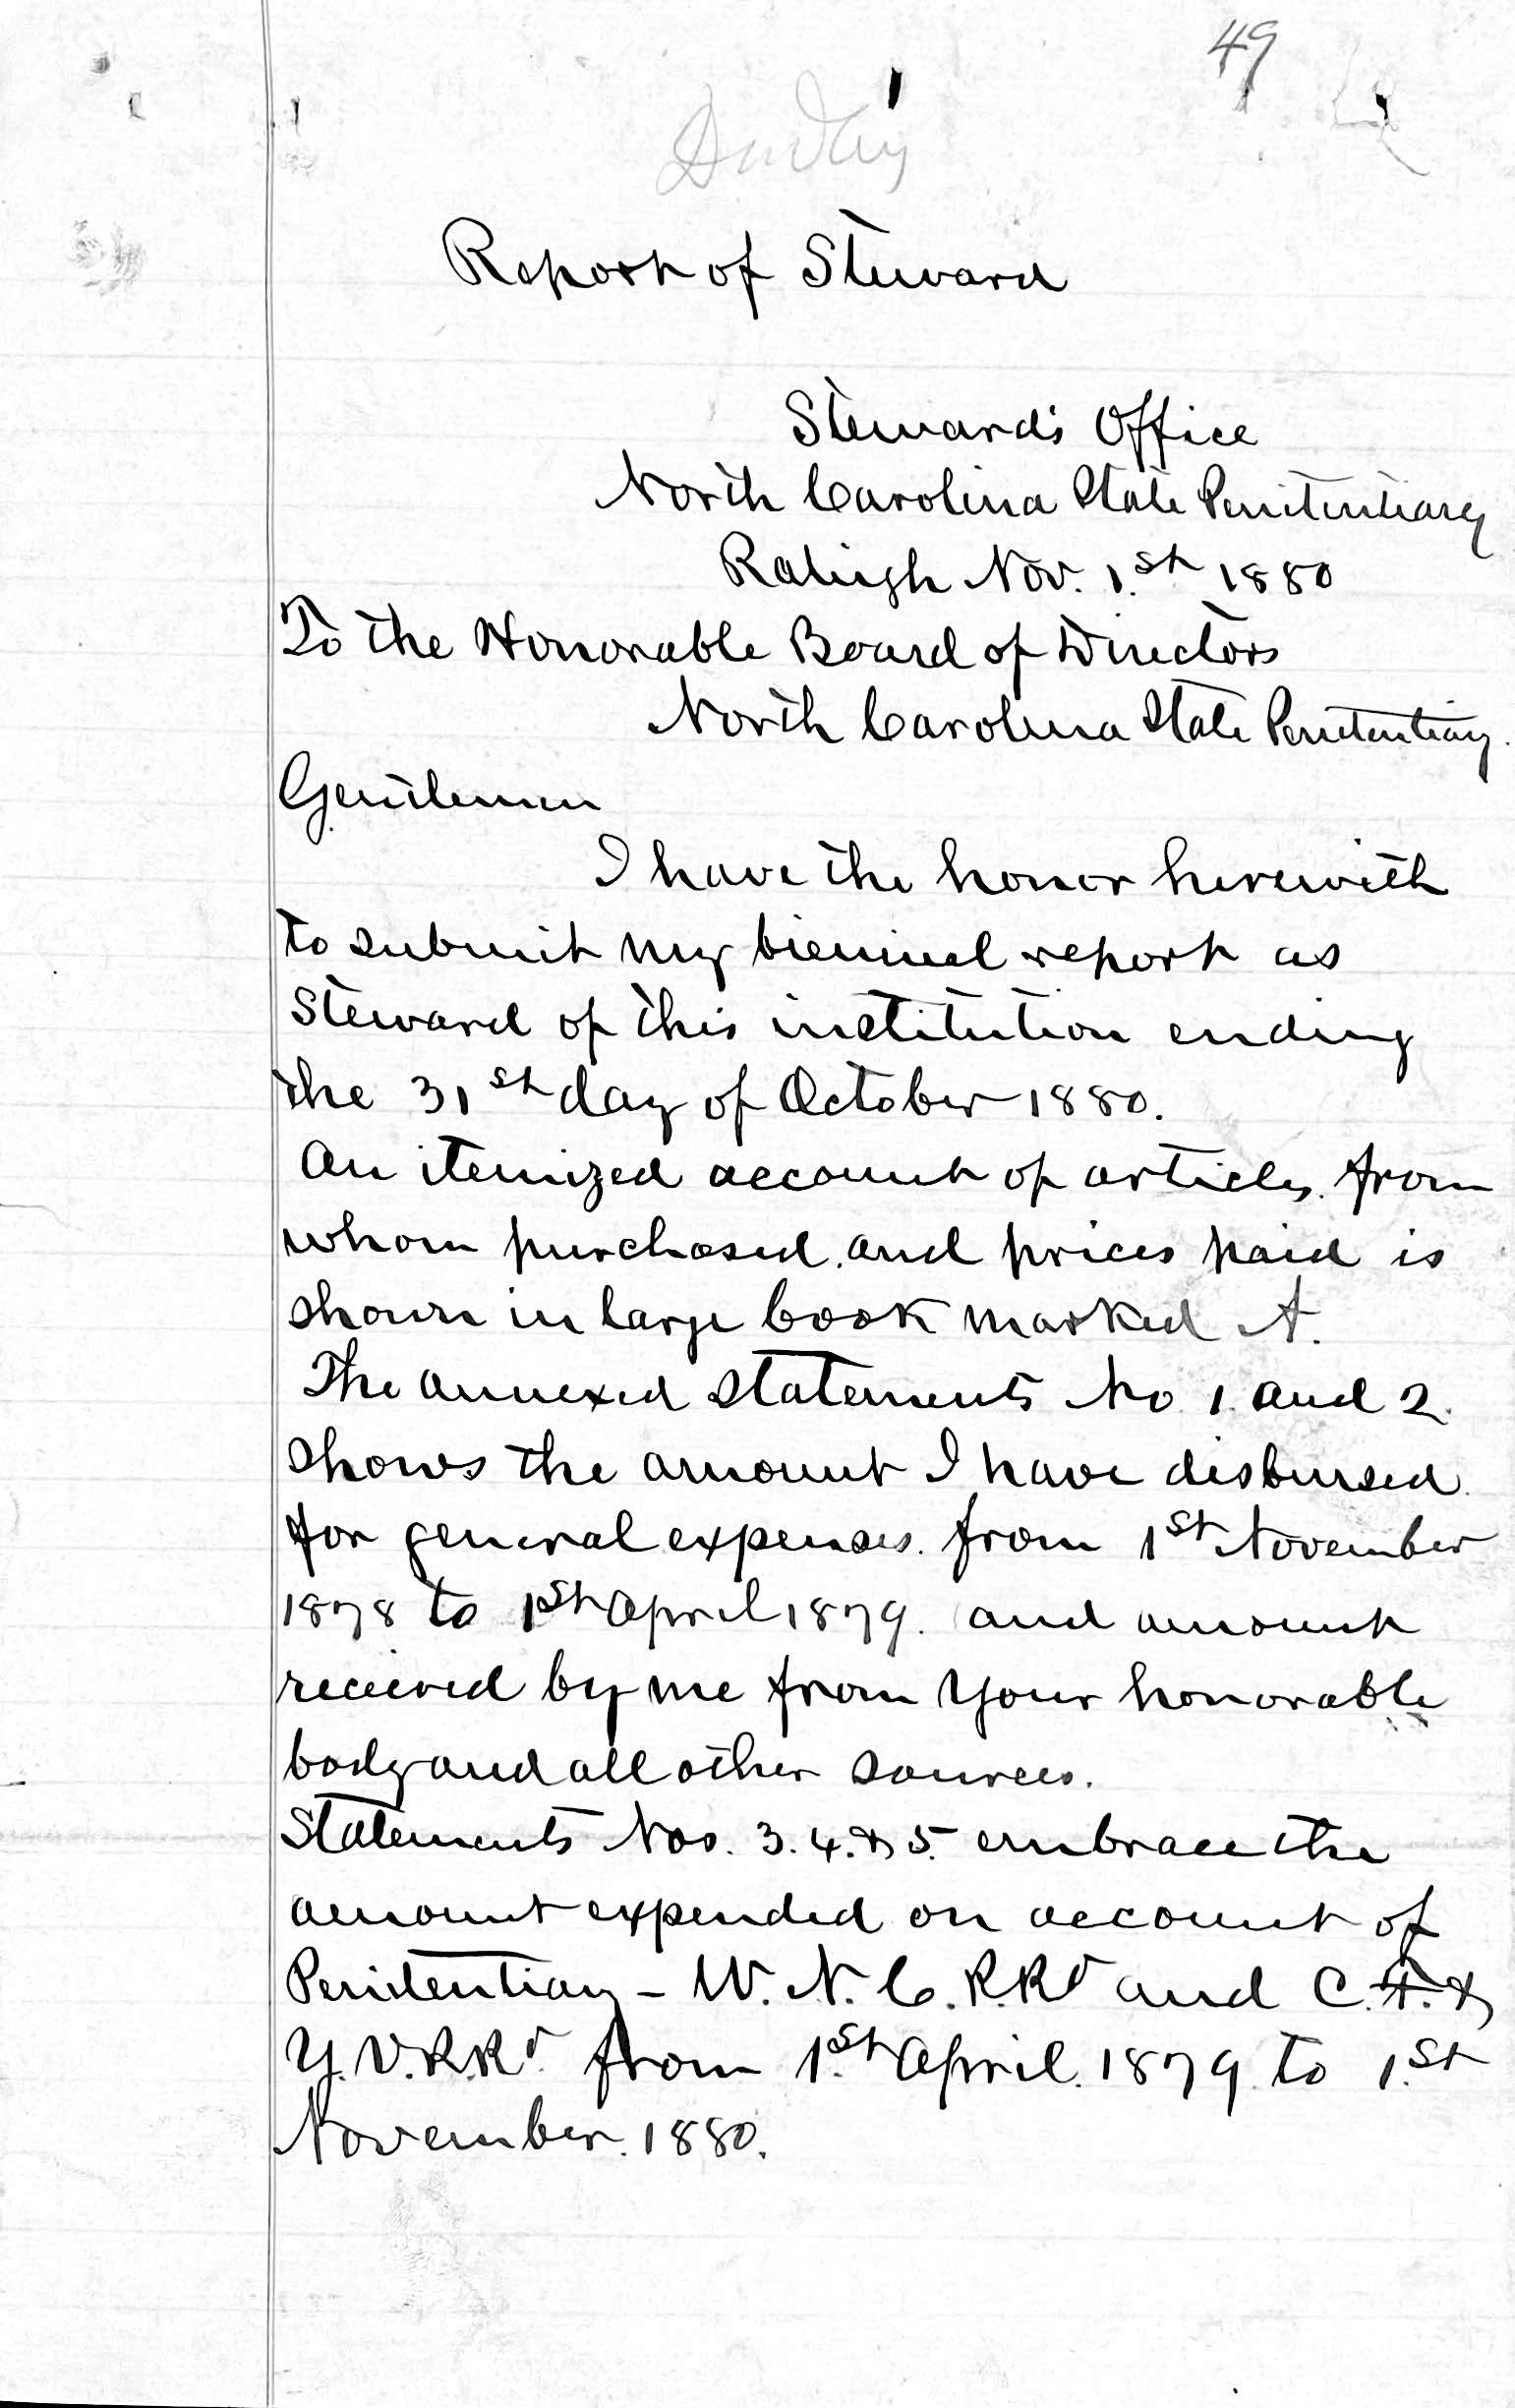 49
Dudley
Report of Steward
Steward's Office
North Carolina State Penitentiary
Raleigh Nov. 1.st 1880
To the Honorable Board of Directors
North Carolina State Penitentiary.
Gentlemen
I have the honor herewith
to submit my biennial report as
Steward of this institution ending
the 31st day of October 1880.
An itemized account of articles. from
whom purchased. and prices paid is
shown in large book marked A.
The annexed statements No 1. and 2.
shows the amount I have disbursed.
for general expenses. from 1st November
1878 to 1st April 1879. and amount
received by me from your honorable
body and all other sources.
Statements Nos. 3. 4. & 5. embrace the
amount expended on account of
Penitentiary - W. N. C. R. Rd and C. F. &
Y. V. R. Rd. from 1.st April. 1879 to 1.st
November. 1880.